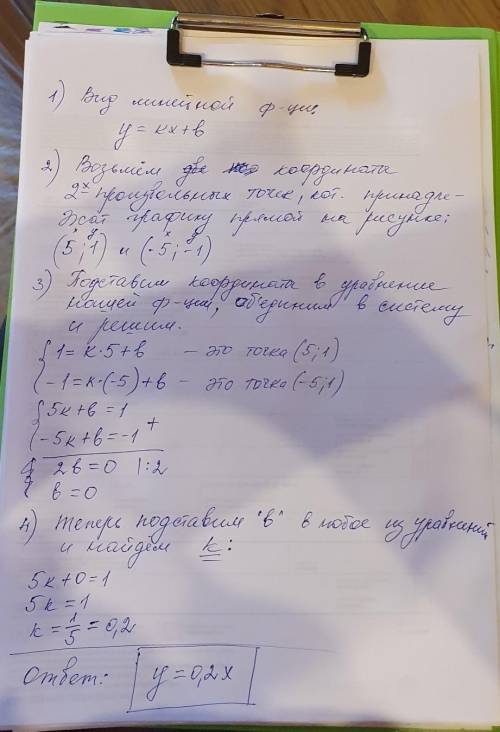 1) Вид линейной ф-ции
y = kx + b
2) Возьмём координаты
2-х произвольных точек, кот. принадле-
жат графику прямой на рисунке:
x y x y
(5; 1) и (-5; -1)
3) Подставим координаты в уравнение
нашей ф-ции, объединим в систему
и решим.
{ 1 = k·5 + b — это точка (5; 1)
{ -1 = k·(-5) + b — это точка (-5; 1)
{ 5k + b = 1
{ -5k + b = -1 +
{ 2b = 0 |:2
{ b = 0
4) Теперь подставим "b" в любое из уравнений
и найдём k:
5k + 0 = 1
5k = 1
k = 1/5 = 0,2
Ответ: y = 0,2x